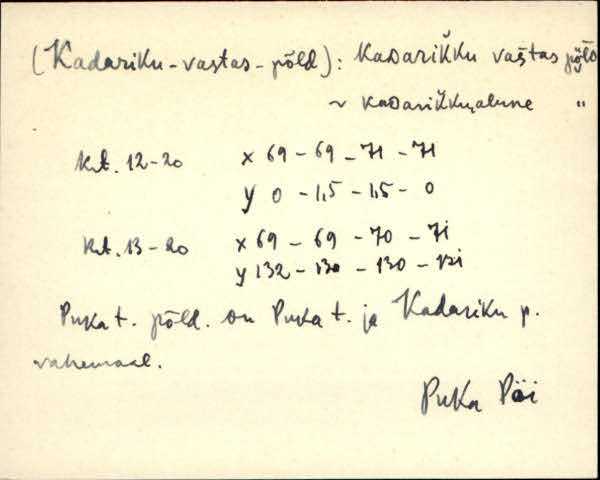 (Kadariku-vastas-põld): kaᴅarik̆ku vas̆tas põlᴅ
~ kaᴅarik̆ku, alune "
Krt. 12-20 x 69 - 69 - 71 - 71
y 0 - 1,5 - 1,5 - 0
Krt. 13-20 x 69 - 69 - 70 - 71
y 132 - 130 - 130 - 131
Puka t. põld. on Puka t. ja Kadariku p.
vahemaal.
Puka Pöi